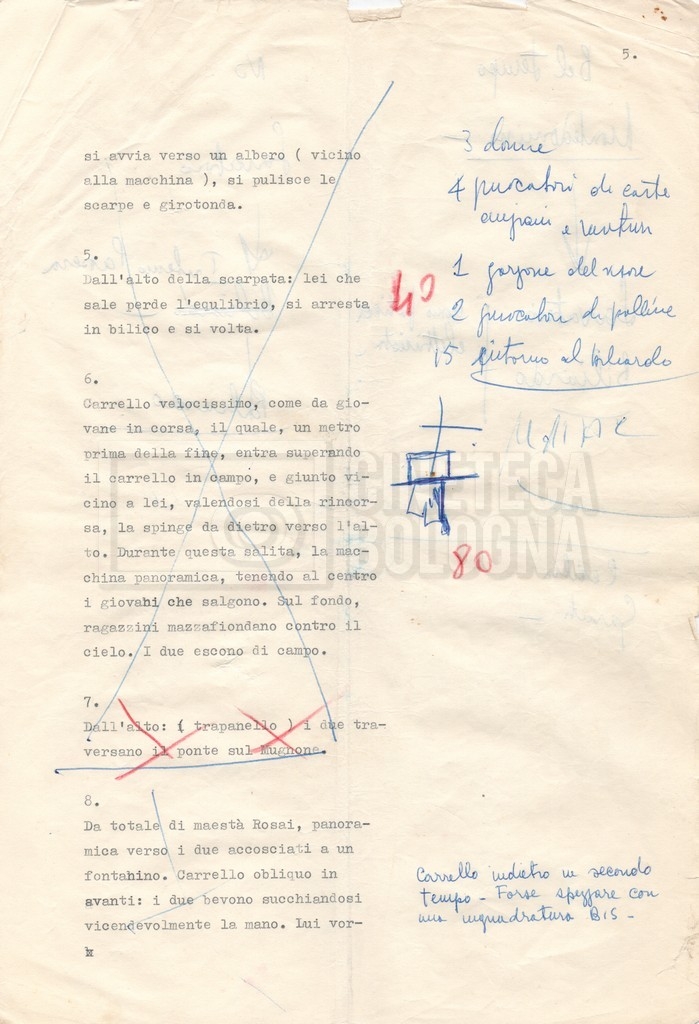 5.
si avvia verso un albero ( vicino
alla macchina ), si pulisce le
scarpe e girotonda.
5.
Dall'alto della scarpata: lei che
sale perde l'equlibrio, si arresta
in bilico e si volta.
6.
Carrello velocissimo, come da gio-
vane in corsa, il quale, un metro
prima della fine, entra superando
il carrello in campo, e giunto vi-
cino a lei, valendosi della rincor-
sa, la spinge da dietro verso l'al-
to. Durante questa salita, la mac-
china panoramica, tenendo al centro
i giovani che salgono. Sul fondo,
ragazzini mazzafiondano contro il
cielo. I due escono di campo.
7.
Dall'alto: ( trapanello ) i due tra-
versano il ponte sul Mugnone.
8.
Da totale di maestà Rosai, panora-
mica verso i due accosciati a un
fontanino. Carrello obliquo in
avanti: i due bevono succhiandosi
vicendevolmente la mano. Lui vor-
3 donne
4 giuocatori di carte
e
1 garzone del
2 giuocatori di palline
15 intorno al biliardo
40
80
Carrello indietro in secondo
tempo - Forse spezzare con
una inquadratura BIS -
CINETECA
BOLOGNA